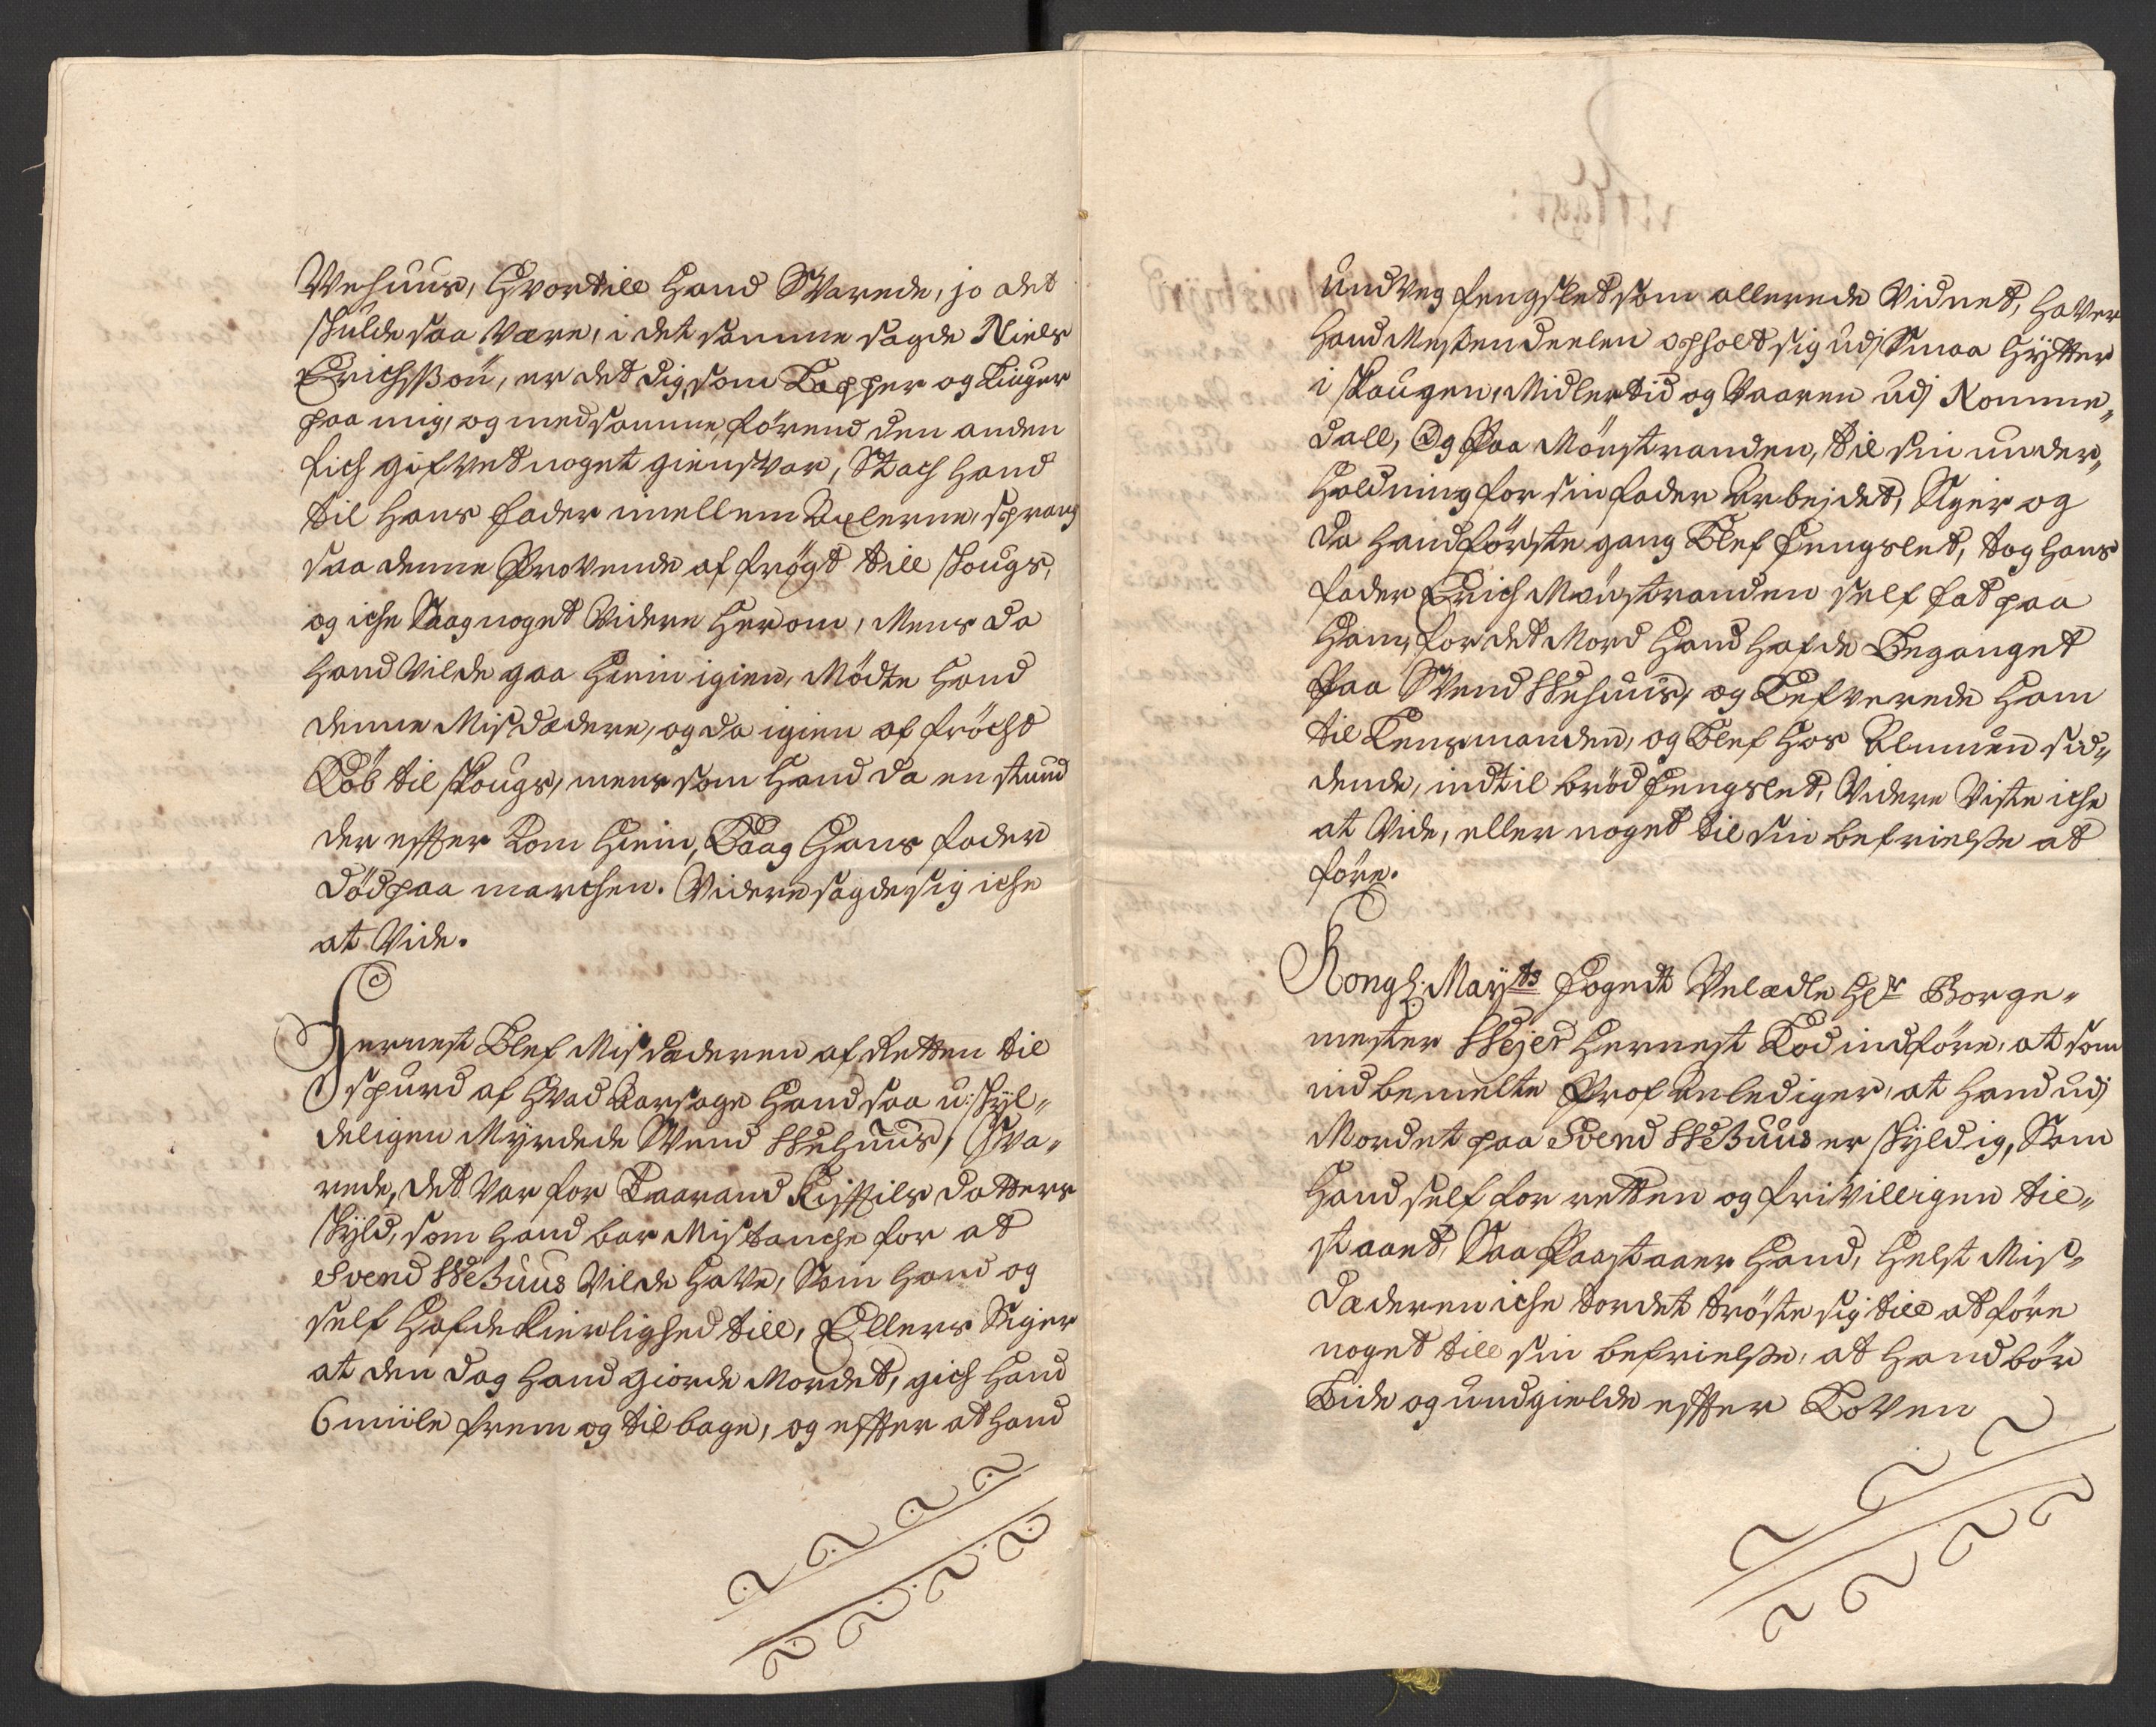 Wehuus, Hvortill Hand Swarede, jo det
skulde saa være, i det samme sagde Niels
Erichssøn, er det dig, som Lapper og Liuger
paa mig, og med samme, förend den anden
fich gifved noget giensvar, Stach Hand
til Hans fader imellem Axlerne, sprang
saa denne Provende af frögt till skougs,
og iche Saag noget Videre Herom, Mens da
Hand Vilde gaa Hiem igien, Mödte Hand
denne Misdædere, og da igien af fröcht
Löb til skougs, mens som Hand da en stund
der effter kom Hiem, Laag Hans fader
död paa marchen. Videre sagde sig iche
at Vide.
Hernest Blef Misdæderen af Retten til
spurd af Hvad Aarsage Hand saa u-skyl-
deligen Myrdede Swend Wehuus, Sva-
rede, det Var for Baarand Kieldsdatters
skyld, som Hand bar Mistanche for at
Svend Wehuus Vilde Have, Som Hand og
self Hafde Kierlighed till, Ellers Siger
at den dag Hand giorde Mordet, gich Hand
6 miile frem og tilbage, og effter at Hand
undveg fengslet som allerede Vidnet, Haver
Hand Mestendeelen opholt sig udj Smaa Hÿtter
i skougen, Midlertid og Vaaren udj Romme-
dall, Og Paa Mönstranden, til sin under-
Holdning for sin fader Arbejdet, Siger og
da Hand förste gang Blef Fengslet, tog Hans
fader Erich Mönstranden self fat paa
Ham, for det Mord Hand Hafde Beganget
Paa Swend Wehuus, og Lefverede Ham
til Lensmanden, og Blef Hos Almuen sid-
dende, indtil bröd fengslet, Videre Viste iche
at Vide, eller noget til sin befrielsse at
före.
Kongl: Mayts Fogedt Velædle Hr Borge-
mester Wejer Hernest Lod indföre, at som
indbemelte Prof Anlediger, at Hand udj
Mordet paa Svend Wehuus er skyldig, Som
Hand self for retten og frivilligen til-
staaed, Saa Paastaaer Hand, Helst Mis-
dæderen iche tordet tröste sig till at före
noget till sin befrielsse, at Hand bör
Lide og undgielde effter Loven